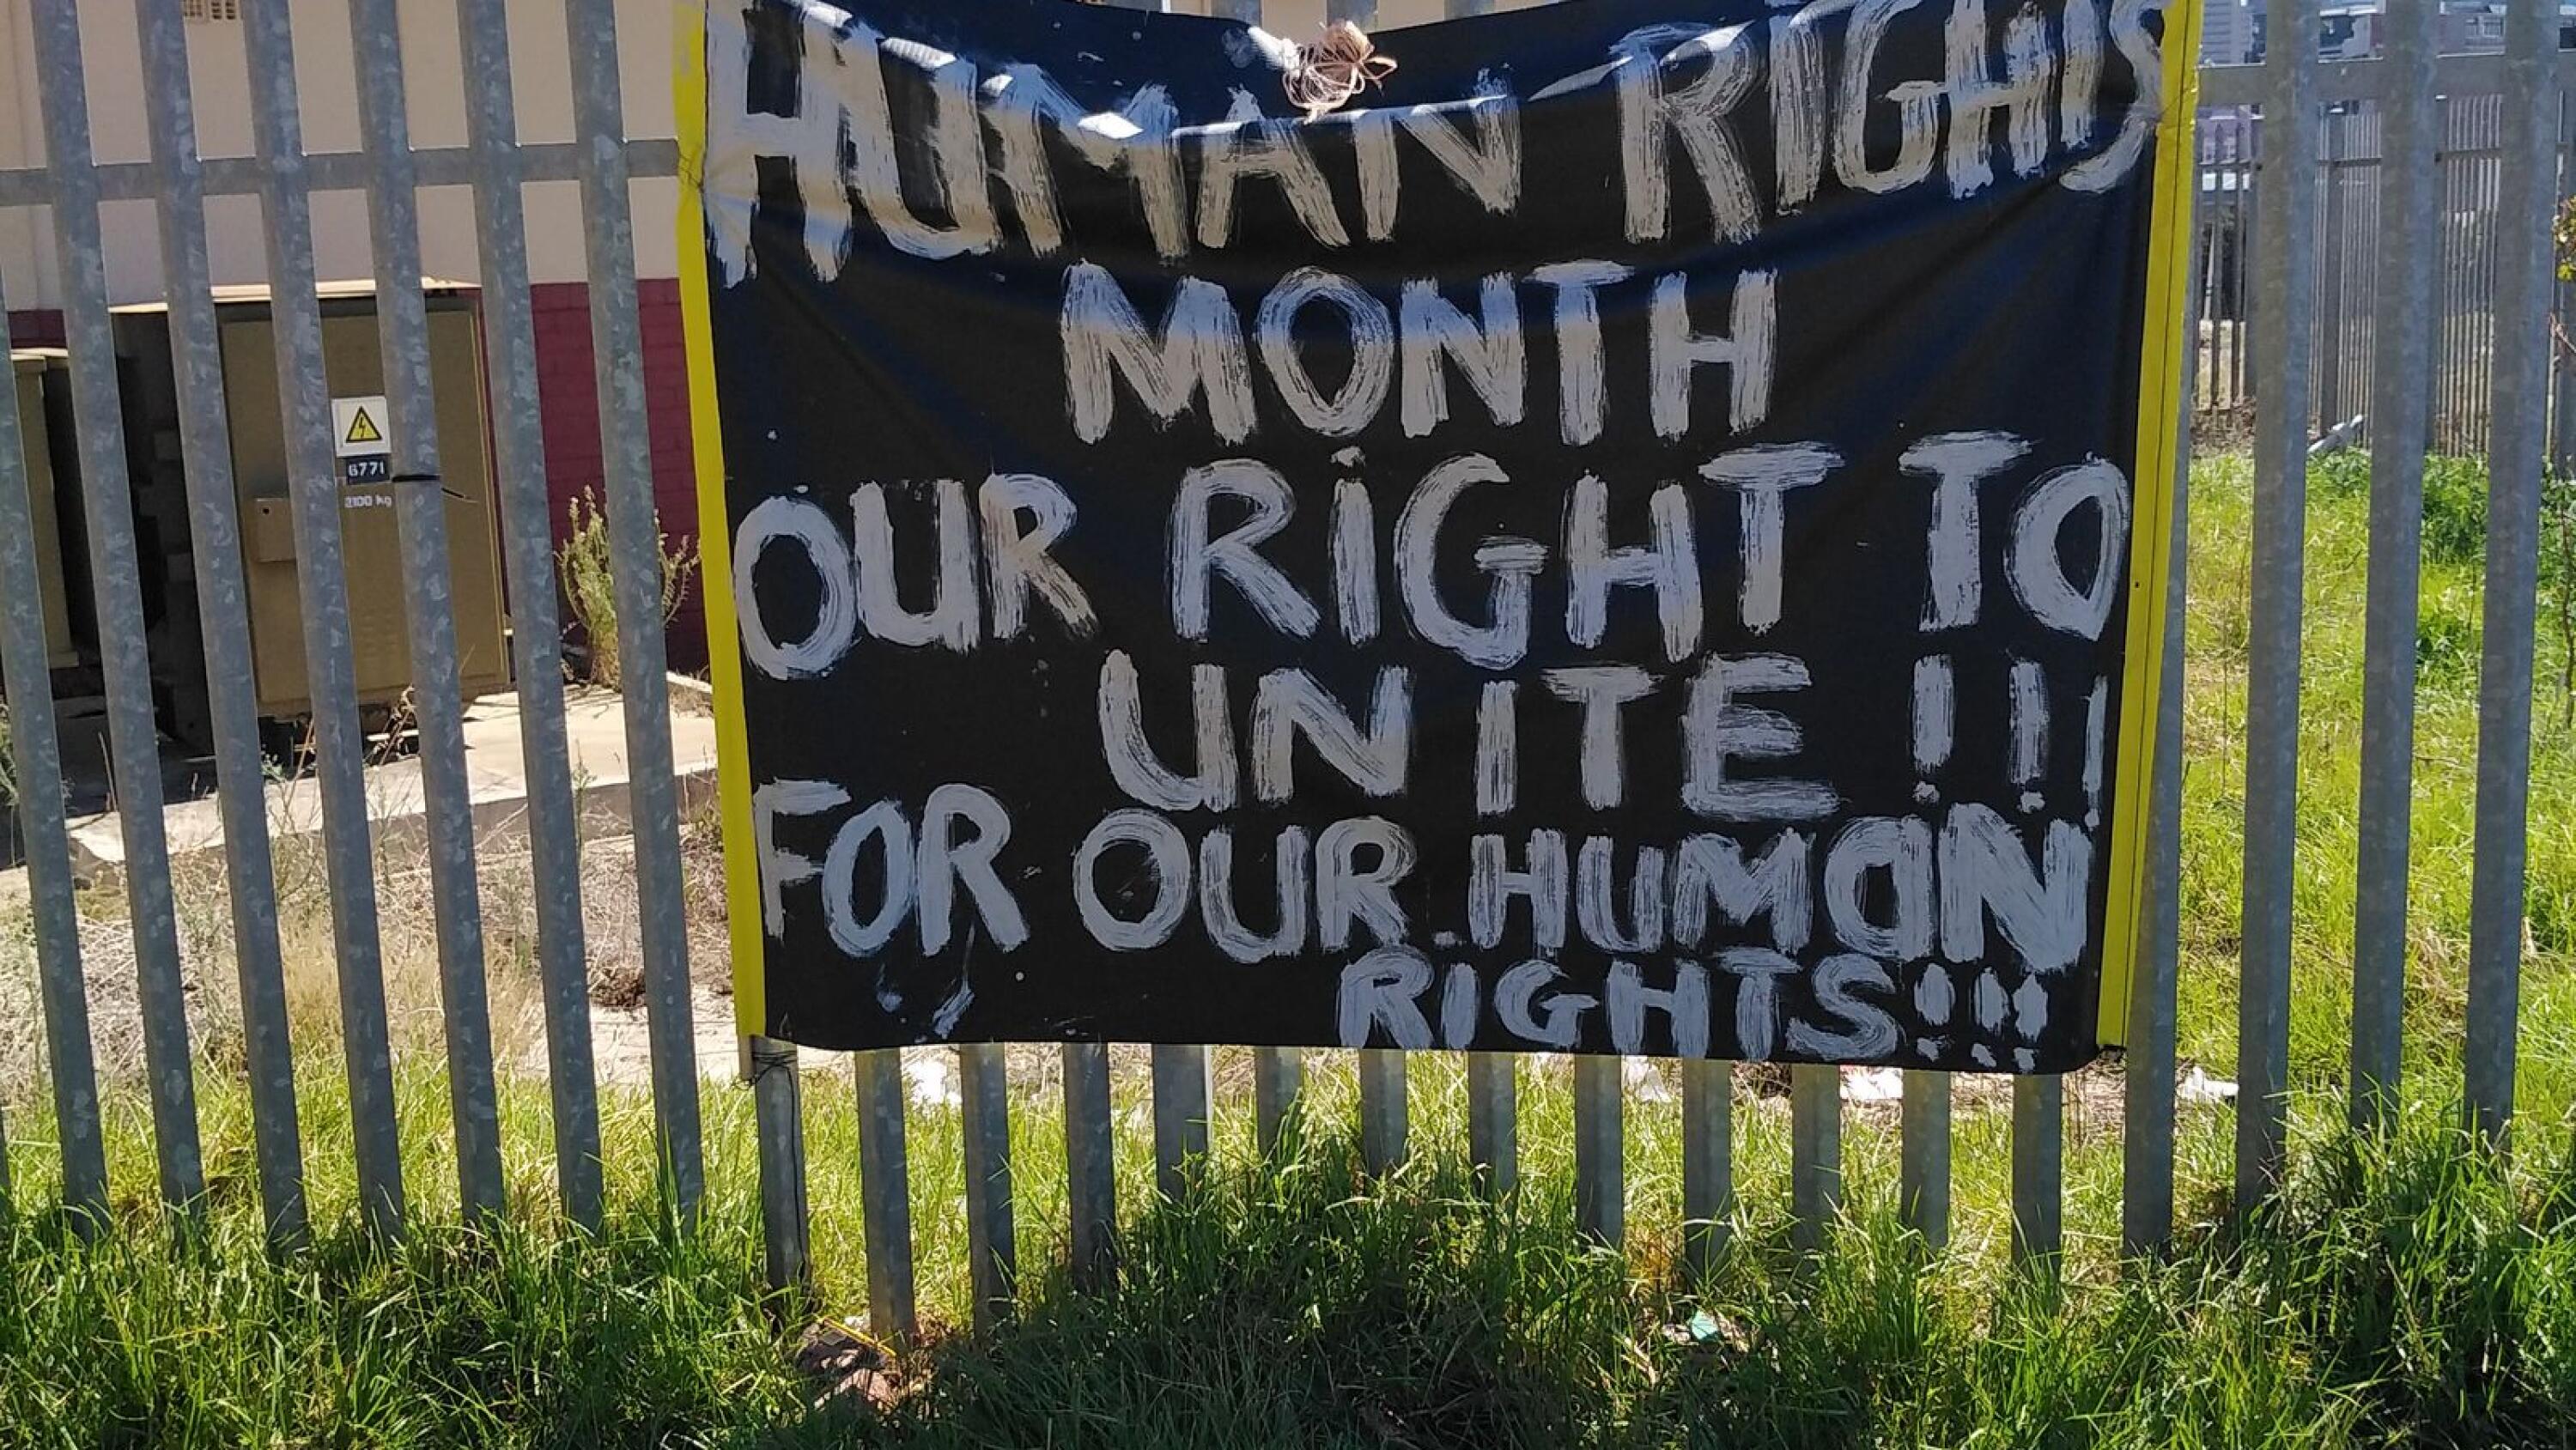 HUMAN RIGHTS
MONTH
OUR RIGHT TO
UNITE!!!
FOR OUR HUMAN
RIGHTS!!!
6771
2100 kg